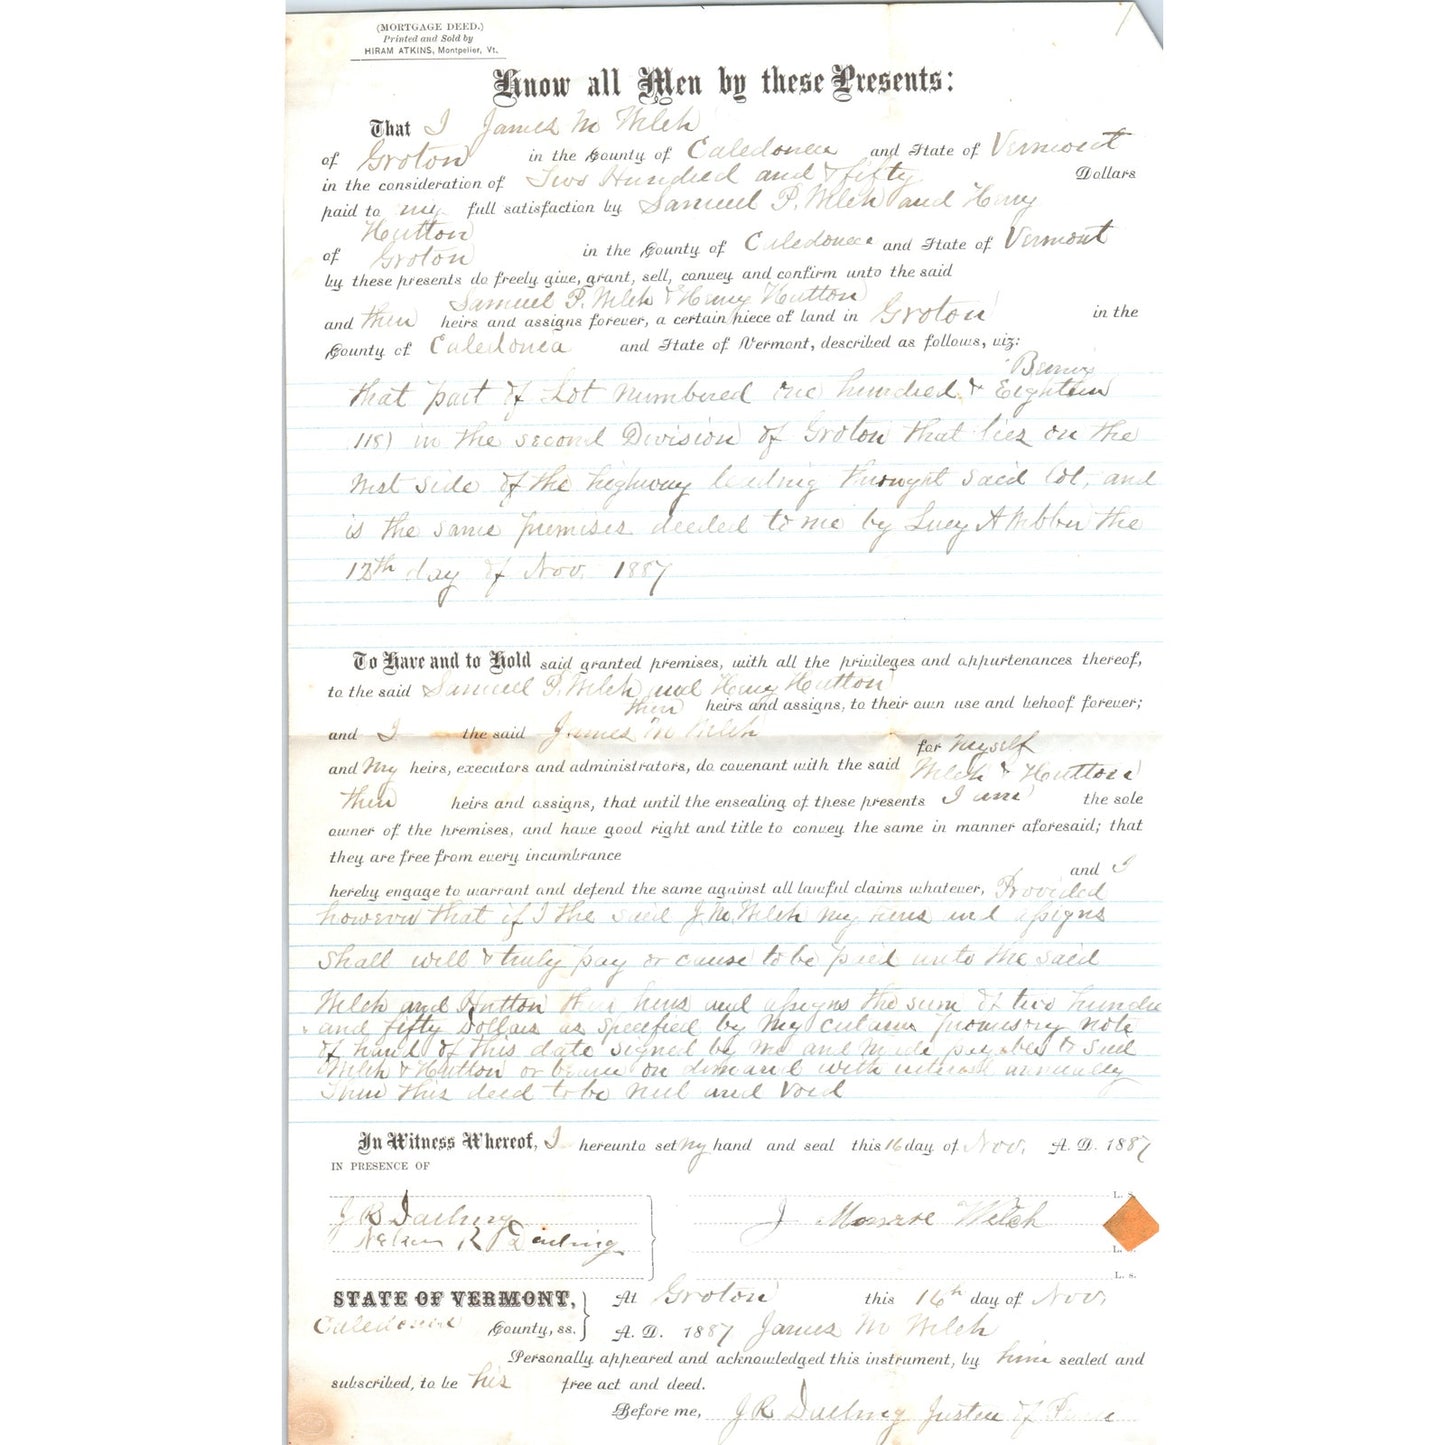 (MORTGAGE DEED.)
Printed and Sold by
HIRAM ATKINS, Montpelier, Vt.
Know all Men by these Presents:
That I James M Welch
of Groton in the County of Caledonia and State of Vermont
in the consideration of Two Hundred and & fifty Dollars
paid to my full satisfaction by Samuel P. Welch and Henry
Hutton
of Groton in the County of Caledonia and State of Vermont
by these presents do freely give, grant, sell, convey and confirm unto the said
Samuel P. Welch & Henry Hutton
and their heirs and assigns forever, a certain piece of land in Groton in the
County of Caledonia and State of Vermont, described as follows, viz:
Being
that part of Lot numbered one hundred & Eighteen
118) in the second Division of Groton that lies on the
West side of the highway leading throught said lot, and
is the same premises deeded to me by Lucy A Webber the
12th day of Nov. 1887
To Have and to Hold said granted premises, with all the privileges and appurtenances thereof,
to the said Samuel P. Welch and Henry Hutton
their heirs and assigns, to their own use and behoof forever;
and I the said James M Welch
for Myself
and My heirs, executors and administrators, do covenant with the said Welch & Hutton
their heirs and assigns, that until the ensealing of these presents I am the sole
owner of the premises, and have good right and title to convey the same in manner aforesaid; that
they are free from every incumbrance
and I
hereby engage to warrant and defend the same against all lawful claims whatever, Provided
however that if I the said J. M. Welch my heirs and assigns
Shall well & truly pay or cause to be paid unto the said
Welch and Hutton their heirs and assigns the sum of two hundred
and fifty Dollars as specified by my promisory note
of hand of this date signed by me and made payable to said
Welch & Hutton or bearer on demand with interest annually
Then this deed to be null and void
In Witness Whereof, I hereunto set my hand and seal this 16 day of Nov. A. D. 1887
IN PRESENCE OF
L. S.
J R Darling
J Monroe Welch
Nelson R Darling
L. S.
L. S.
STATE OF VERMONT, At Groton this 16th day of Nov.
Caledonia County, ss. A. D. 1887 James M Welch
Personally appeared and acknowledged this instrument, by him sealed and
subscribed, to be his free act and deed.
Before me, J R Darling Justice of Peace